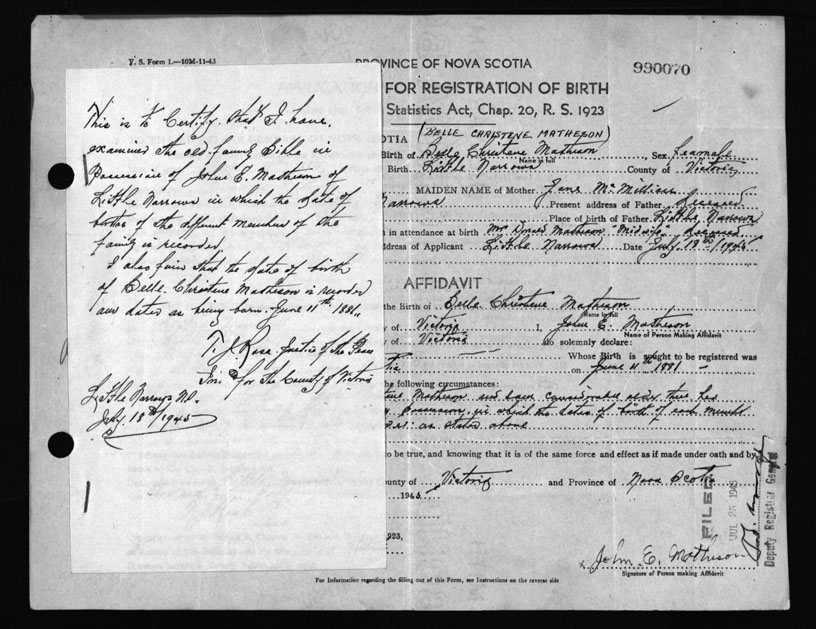 V. S. Form 1.—10M-11-43
PROVINCE OF NOVA SCOTIA
990070
FOR REGISTRATION OF BIRTH
Statistics Act, Chap. 20, R. S. 1923
This is to Certify that I have
examined the old family Bible in
Possession of John E. Matheson of
Little Narrows in which the date of
births of the different member of the
family is recorded
I also find that the date of birth
of Belle Christine Matheson is recorded
and dated as being born June 11th 1881
T. J. Rose Justice of the Peace
for the County of Victoria
Little Narrows N.S.
July 18th/1945
OTIA
(BELLE CHRISTENE MATHESON)
Birth of Belle Christene Matheson Sex
Name in full
Birth Little Narrows County of Victoria
MAIDEN NAME of Mother Jane
Narrows Present address of Father Deceased
Place of birth of Father Little Narrows
in attendance at birth Mrs Donald Matheson "Midwife" Deceased
ddress of Applicant Little Narrows Date July 18th/1945
AFFIDAVIT
the Birth of Belle Christene Matheson
Name in full
of Victoria I, John E. Matheson
Name of Person Making Affidavit
of Victoria do solemnly declare:
Whose Birth is sought to be registered was
on June 11th 1881
the following circumstances:
Matheson and have
Possession, in which the dates of birth of each
as stated above
to be true, and knowing that it is of the same force and effect as if made under oath and by
ounty of Victoria and Province of Nova Scotia
1945
FILED
JUL 25 1945
Deputy Registrar General
923,
John E. Matheson
Signature of Person making Affidavit
For Information regarding the filling out of this Form, see Instructions on the reverse side